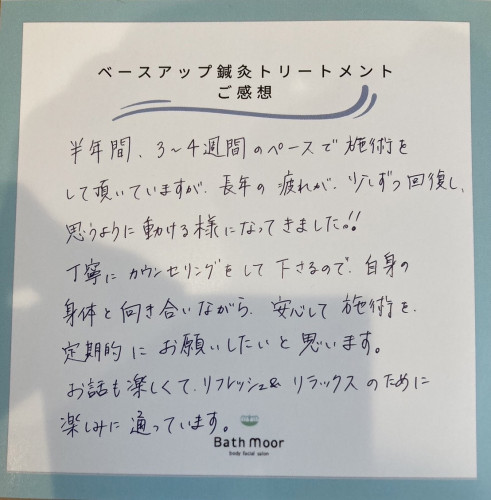 ベースアップ鍼灸トリートメント
ご感想
半年間、3～4週間のペースで施術を
して頂いていますが、長年の疲れが、少しずつ回復し、
思うように動ける様になってきました!!
丁寧にカウンセリングをして下さるので、自身の
身体と向き合いながら、安心して施術を、
定期的にお願いしたいと思います。
お話も楽しくて、リフレッシュ&リラックスのために
楽しみに通っています。
Bath Moor
body facial salon